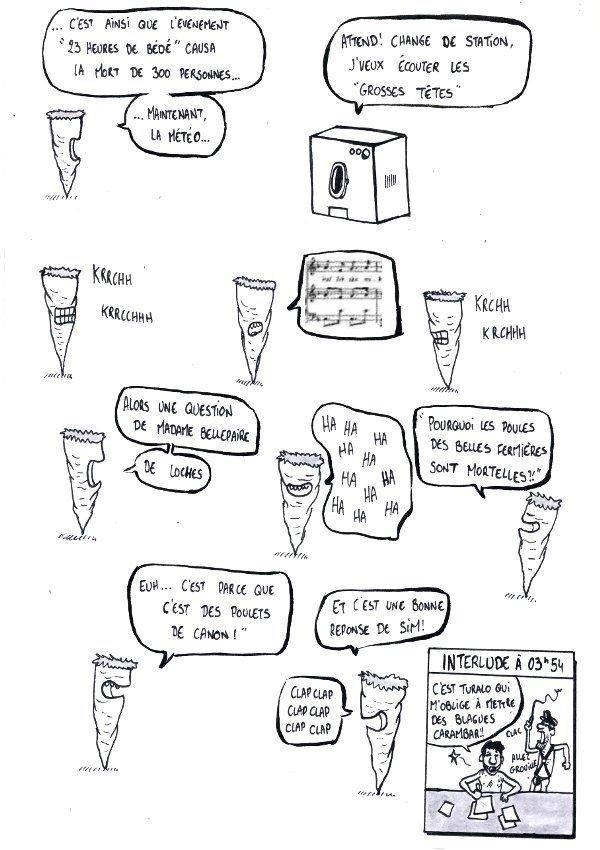 ... C'EST AINSI QUE L'EVENEMENT
"23 HEURES DE BÉDÉ" CAUSA
LA MORT DE 300 PERSONNES...
... MAINTENANT,
LA MÉTÉO...
ATTEND! CHANGE DE STATION,
J'VEUX ÉCOUTER LES
"GROSSES TÊTES"
KRRCHH
KRRCCHHH
KRCHH
KRCHHH
ALORS UNE QUESTION
DE MADAME BELLEPAIRE
DE LOCHES
HA
HA HA
HA HA
HA
HA HA
HA HA
HA HA
HA HA
"POURQUOI LES POULES
DES BELLES FERMIÈRES
SONT MORTELLES?!"
EUH... C'EST PARCE QUE
C'EST DES POULETS
DE CANON!"
ET C'EST UNE BONNE
REPONSE DE SIM!
CLAP CLAP
CLAP CLAP
CLAP CLAP
INTERLUDE À 03H54
C'EST TURALO QUI
M'OBLIGE À METTRE
DES BLAGUES
CARAMBAR!!
CLAC
ALLEZ
GROUILLE